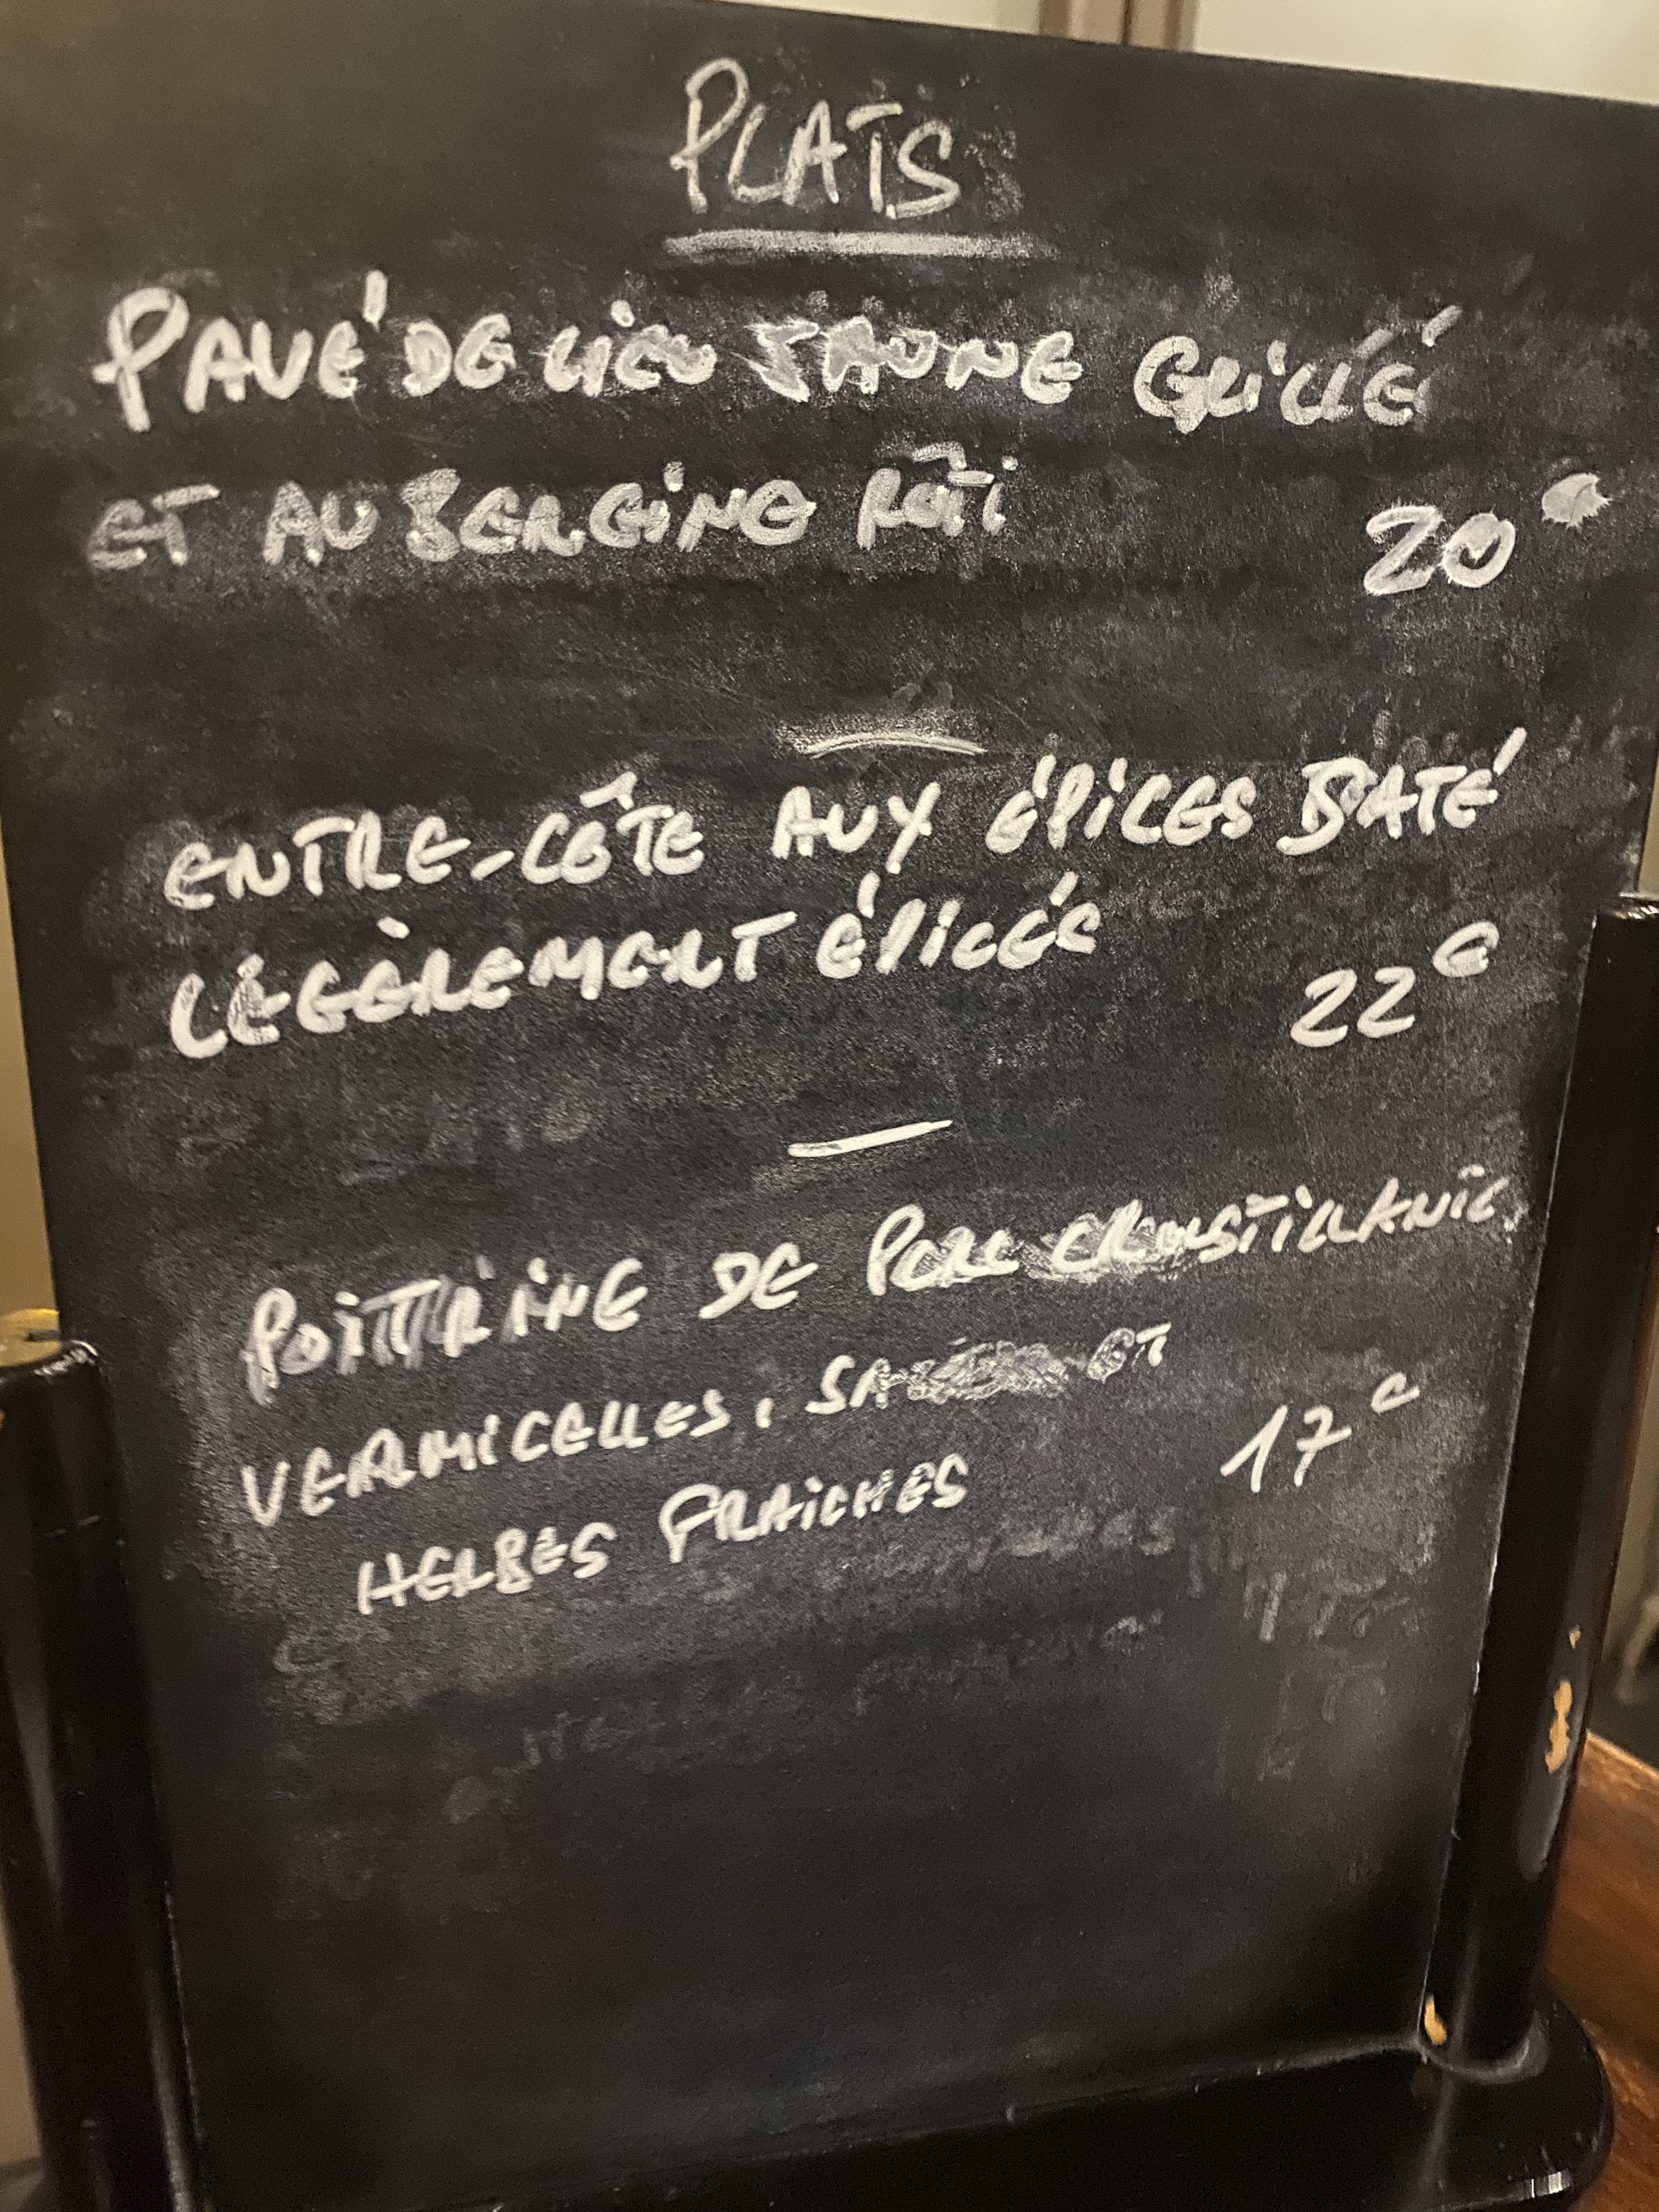 PLATS
PAVÉ DE LIEU JAUNE GRILLÉ
ET AUBERGINE RÔTI 20€
ENTRE-CÔTE AUX ÉPICES SATÉ
LÉGÈREMENT ÉPICÉE 22€
POITRINE DE PORC CROUSTILLANTE,
VERMICELLES, ET
HERBES FRAICHES 17€